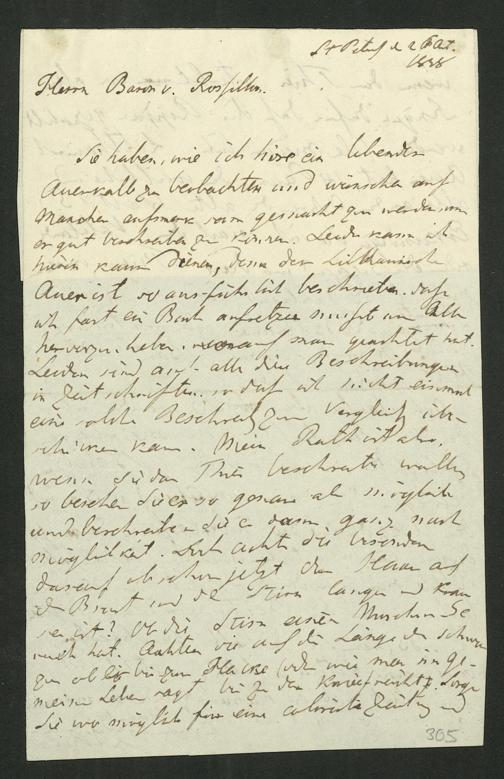 St Petersb. d. 26 Oct.
1838
Herrn Baron v. Rossillon.
Sie haben, wie ich höre ein lebendes
Auerkalb zu beobachten und wünschen auf
Manches aufmerksam gemacht zu werden um
er gut beschreiben zu können. Leider kann ich
hierin kaum dienen, denn der Litthauische
Auer ist so ausführlich beschrieben, daß
ich fast ein Buch aufsetzen müßte um Alles
hervorzuheben, worauf man geachtet hat.
Leider sind auch alle diese Beschreibungen
in Zeitschriften, so daß ich nicht einmal
eine solche Beschreib. zum Vergleich über-
schicken kann. Mein Rath ist also,
wenn Sie das Thier beschreiben wollen
so besehen Sie es so genau als möglich
und beschreiben Sie es dann ganz nach
Möglichkeit. Doch achten Sie besonders
darauf ob schon jetzt das Haar auf
der Brust und der Stirn lang und kraus
sey ist? Ob die Stirn einen Moschus Ge
ruch hat. Achten Sie auf die Länge des Schwan
zes ob er bis zur Hacke (oder wie man im ge-
meinen Leben sagt bis zu den Knieen reicht). Sorgen
Sie wo möglich für eine colorirte Zeichnung und
305